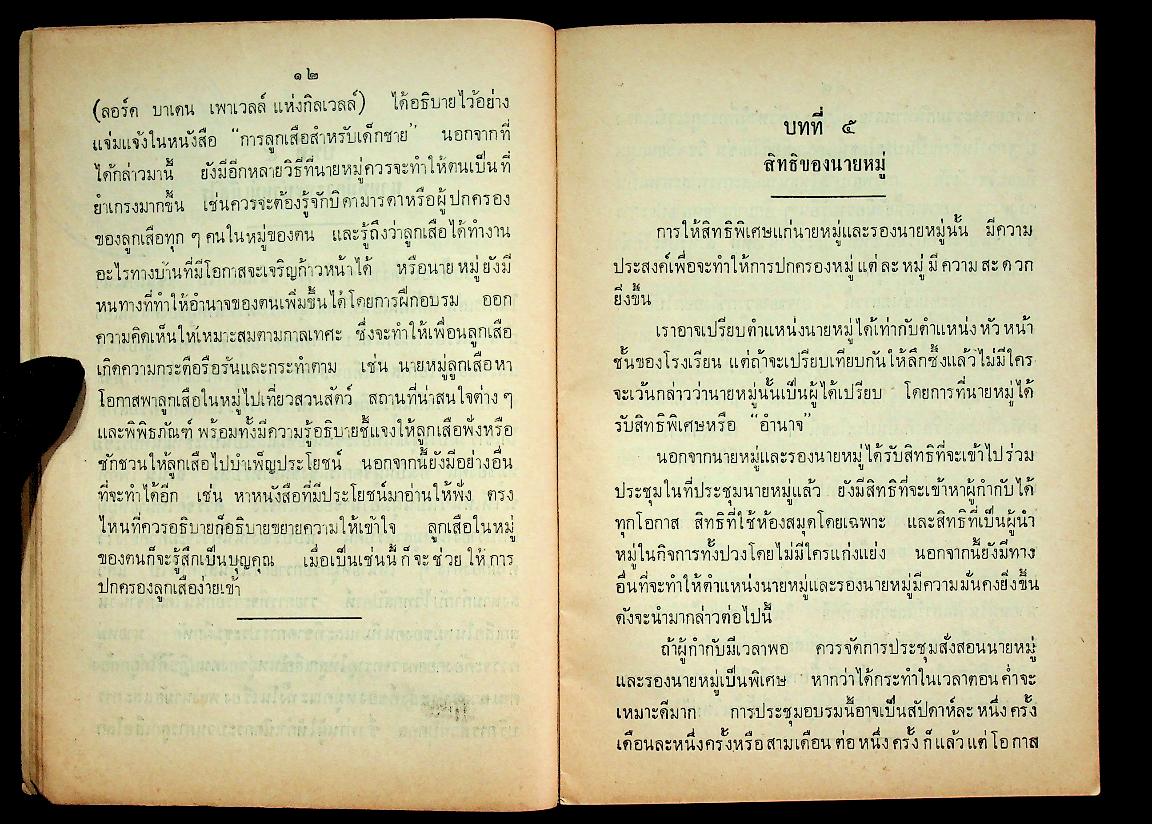 ๑๒
(ลอร์ด บาเดน เพาเวลล์ แห่งกิลเวลล์) ได้อธิบายไว้อย่าง
แจ่มแจ้งในหนังสือ “การลูกเสือสำหรับเด็กชาย” นอกจากที่
ได้กล่าวมานี้ ยังมีอีกหลายวิธีที่นายหมู่ควรจะทำให้ตนเป็นที่
ยำเกรงมากขึ้น เช่นควรจะต้องรู้จักบิดามารดาหรือผู้ปกครอง
ของลูกเสือทุก ๆ คนในหมู่ของตน และรู้ถึงว่าลูกเสือได้ทำงาน
อะไรทางบ้านที่มีโอกาสจะเจริญก้าวหน้าได้ หรือนายหมู่ยังมี
หนทางที่ทำให้อำนาจของตนเพิ่มขึ้นได้โดยการฝึกอบรม ออก
ความคิดเห็นให้เหมาะสมตามกาลเทศะ ซึ่งจะทำให้เพื่อนลูกเสือ
เกิดความกระตือรือร้นและกระทำตาม เช่น นายหมู่ลูกเสือหา
โอกาสพาลูกเสือในหมู่ไปเที่ยวสวนสัตว์ สถานที่น่าสนใจต่าง ๆ
และพิพิธภัณฑ์ พร้อมทั้งมีความรู้อธิบายชี้แจงให้ลูกเสือฟังหรือ
ชักชวนให้ลูกเสือไปบำเพ็ญประโยชน์ นอกจากนี้ยังมีอย่างอื่น
ที่จะทำได้อีก เช่น หาหนังสือที่มีประโยชน์มาอ่านให้ฟัง ตรง
ไหนที่ควรอธิบายก็อธิบายขยายความให้เข้าใจ ลูกเสือในหมู่
ของตนก็จะรู้สึกเป็นบุญคุณ เมื่อเป็นเช่นนี้ก็จะช่วยให้การ
ปกครองลูกเสือง่ายเข้า
บทที่ ๕
สิทธิของนายหมู่
การให้สิทธิพิเศษแก่นายหมู่และรองนายหมู่นั้น มีความ
ประสงค์เพื่อจะทำให้การปกครองหมู่แต่ละหมู่มีความสะดวก
ยิ่งขึ้น
เราอาจเปรียบตำแหน่งนายหมู่ได้เท่ากับตำแหน่งหัวหน้า
ชั้นของโรงเรียน แต่ถ้าจะเปรียบเทียบกันให้ลึกซึ้งแล้วไม่มีใคร
จะเว้นกล่าวว่านายหมู่นั้นเป็นผู้ได้เปรียบ โดยการที่นายหมู่ได้
รับสิทธิพิเศษหรือ “อำนาจ”
นอกจากนายหมู่และรองนายหมู่ได้รับสิทธิที่จะเข้าไปร่วม
ประชุมในที่ประชุมนายหมู่แล้ว ยังมีสิทธิที่จะเข้าหาผู้กำกับได้
ทุกโอกาส สิทธิที่ใช้ห้องสมุดโดยเฉพาะ และสิทธิที่เป็นผู้นำ
หมู่ในกิจการทั้งปวงโดยไม่มีใครแก่งแย่ง นอกจากนี้ยังมีทาง
อื่นที่จะทำให้ตำแหน่งนายหมู่และรองนายหมู่มีความมั่นคงยิ่งขึ้น
ดังจะนำมากล่าวต่อไปนี้
ถ้าผู้กำกับมีเวลาพอ ควรจัดการประชุมสั่งสอนนายหมู่
และรองนายหมู่เป็นพิเศษ หากว่าได้กระทำในเวลาตอนค่ำจะ
เหมาะดีมาก การประชุมอบรมนี้อาจเป็นสัปดาห์ละหนึ่งครั้ง
เดือนละหนึ่งครั้งหรือสามเดือนต่อหนึ่งครั้งก็แล้วแต่โอกาส